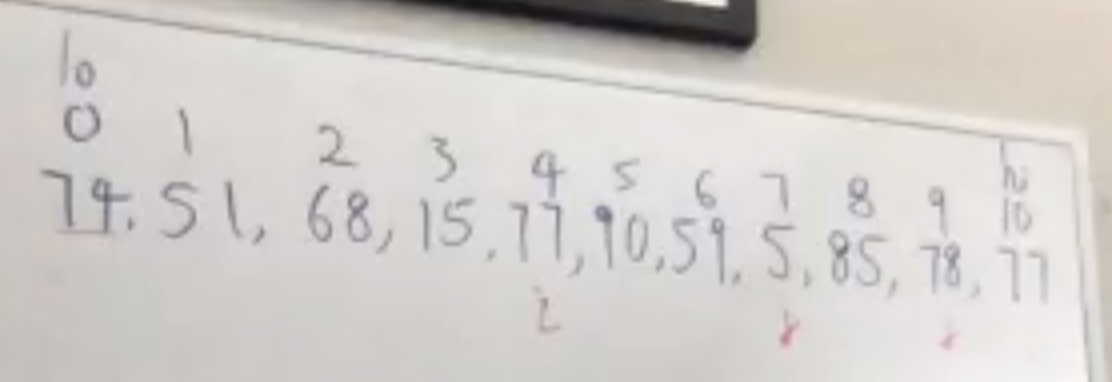 lo hi
0 1 2 3 4 5 6 7 8 9 10
74, 51, 68, 15, 77, 90, 59, 5, 85, 78, 77
i